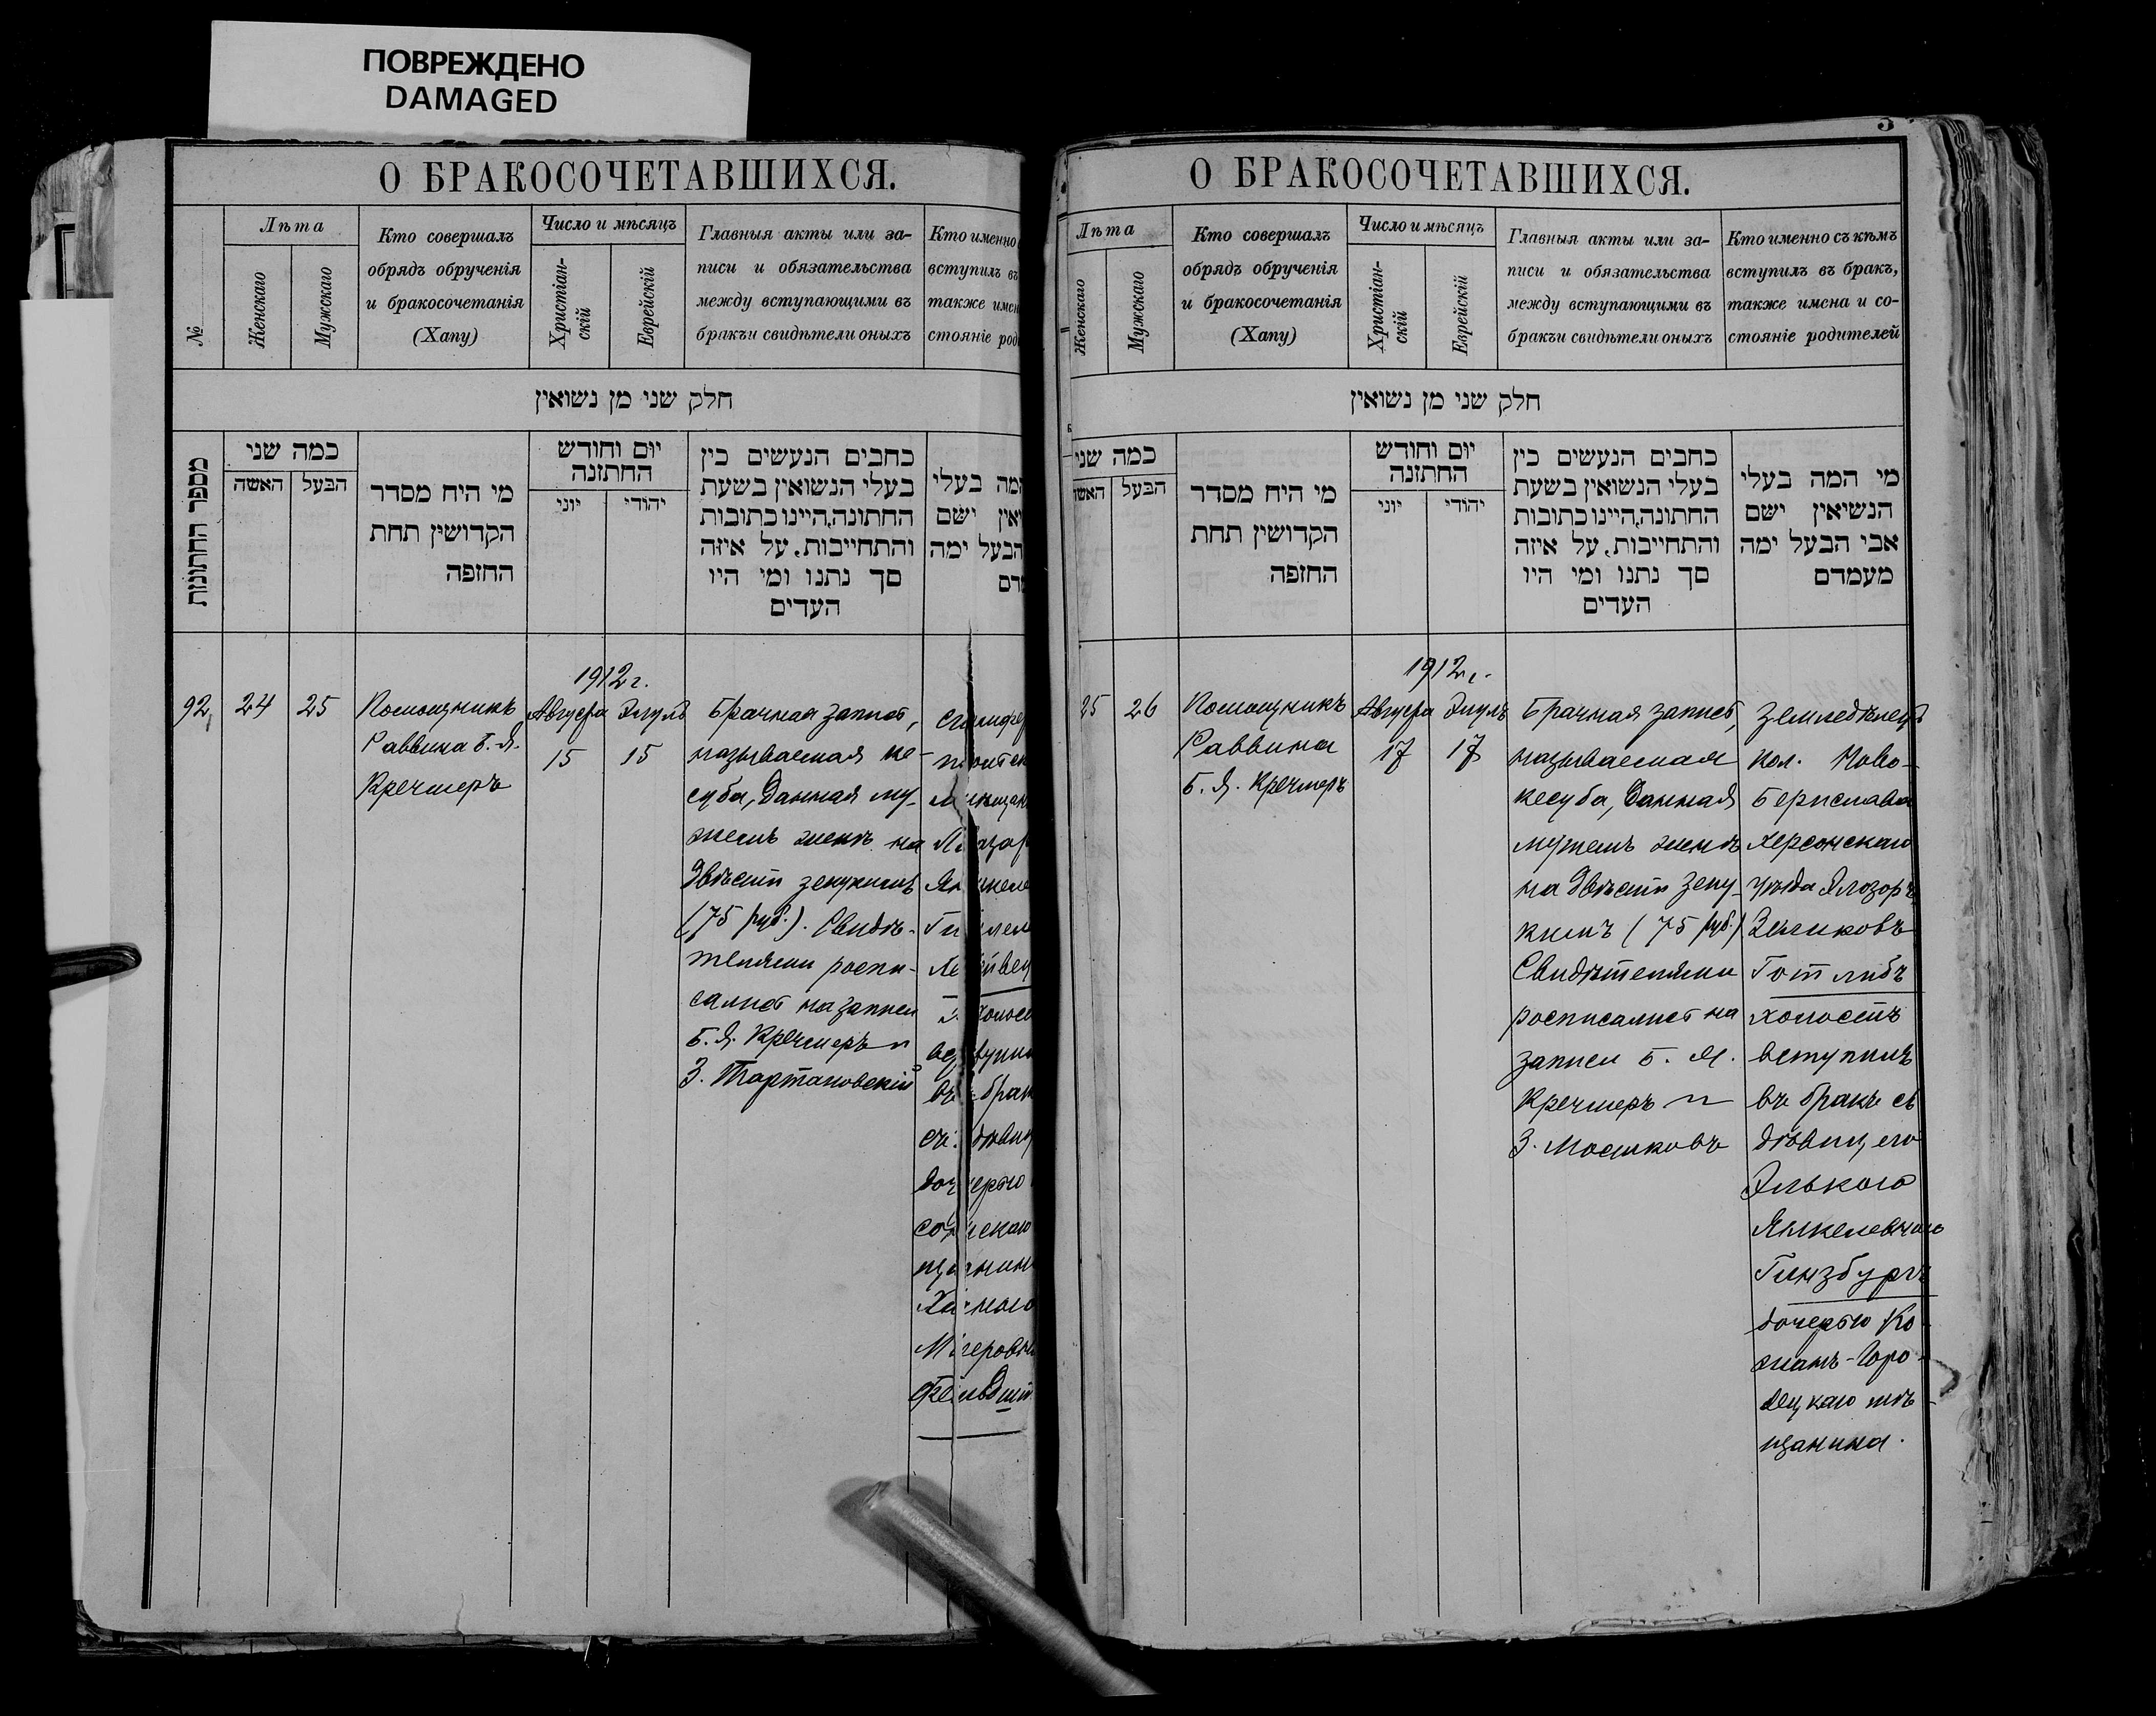 ПОВРЕЖДЕНО
DAMAGED
О БРАКОСОЧЕТАВШИХСЯ.
№
Лѣта
Женскаго
Мужскаго
Кто совершалъ
обрядъ обрученія
и бракосочетанія
(Хапу)
Число и мѣсяцъ
Христіан-
скій
Еврейскій
Главныя акты или за-
писи и обязательства
между вступающими въ
бракъ и свидѣтели оныхъ
Кто именно
вступилъ въ
также
стояніе
חלק שני מן נשואין
מספר החתונות
כמה שני
האשה
הבעל
מי היח מסדר
הקדושין תחת
החופה
יום וחודש
החתונה
יוני
יהודי
כחבים הנעשים כין
בעלי הנשואין בשעת
החתונה,היינו כתובות
והתחייבות, על איזה
סך נתנו ומי היו
העדים
המה בעלי
ישם
הבעל ימה
92,
24
25
Помощникъ
Раввина Б. Я.
Кречмеръ
1912 г.
Августа Элулъ
15 15
Брачная запись,
называемая ке-
суба, данная му-
жемъ женѣ на
двѣсти зекукимъ
(75 руб.). Свидѣ-
телями роспи-
сались на записи
Б. Я. Кречмеръ и
З. Тартаковскій
О БРАКОСОЧЕТАВШИХСЯ.
Лѣта
Женскаго
Мужскаго
Кто совершалъ
обрядъ обрученія
и бракосочетанія
(Хапу)
Число и мѣсяцъ
Христіан-
скій
Еврейскій
Главныя акты или за-
писи и обязательства
между вступающими въ
бракъ и свидѣтели оныхъ
Кто именно съ кѣмъ
вступилъ въ бракъ,
также имена и со-
стояніе родителей
חלק שני מן נשואין
כמה שני
האשה
הבעל
מי היח מסדר
הקדושין תחת
החופה
יום וחודש
החתונה
יוני
יהודי
כחבים הנעשים כין
בעלי הנשואין בשעת
החתונה,היינו כתובות
והתחייבות, על איזה
סך נתנו ומי היו
העדים
מי המה בעלי
הנשיאין ישם
אבי הבעל ימה
מעמדם
25
26
Помощникъ
Раввина
Б. Я. Кречмеръ
1912 г.
Августа Элулъ
17 17
Брачная запись,
называемая
кесуба, данная
мужемъ женѣ
на двѣсти зеку-
кимъ (75 руб.)
Свидѣтелями
росписались на
записи Б. Я.
Кречмеръ и
З. Мошковъ
Земледѣлецъ
кол. Ново-
Берислава
Херсонскаго
уѣзда
Зеликовъ
Готлибъ
холостъ
вступилъ
въ бракъ съ
дѣвицею
Элькою
Янкелевною
Гинзбургъ
дочерью Ко-
жанъ-Горо-
децкаго мѣ-
щанина.